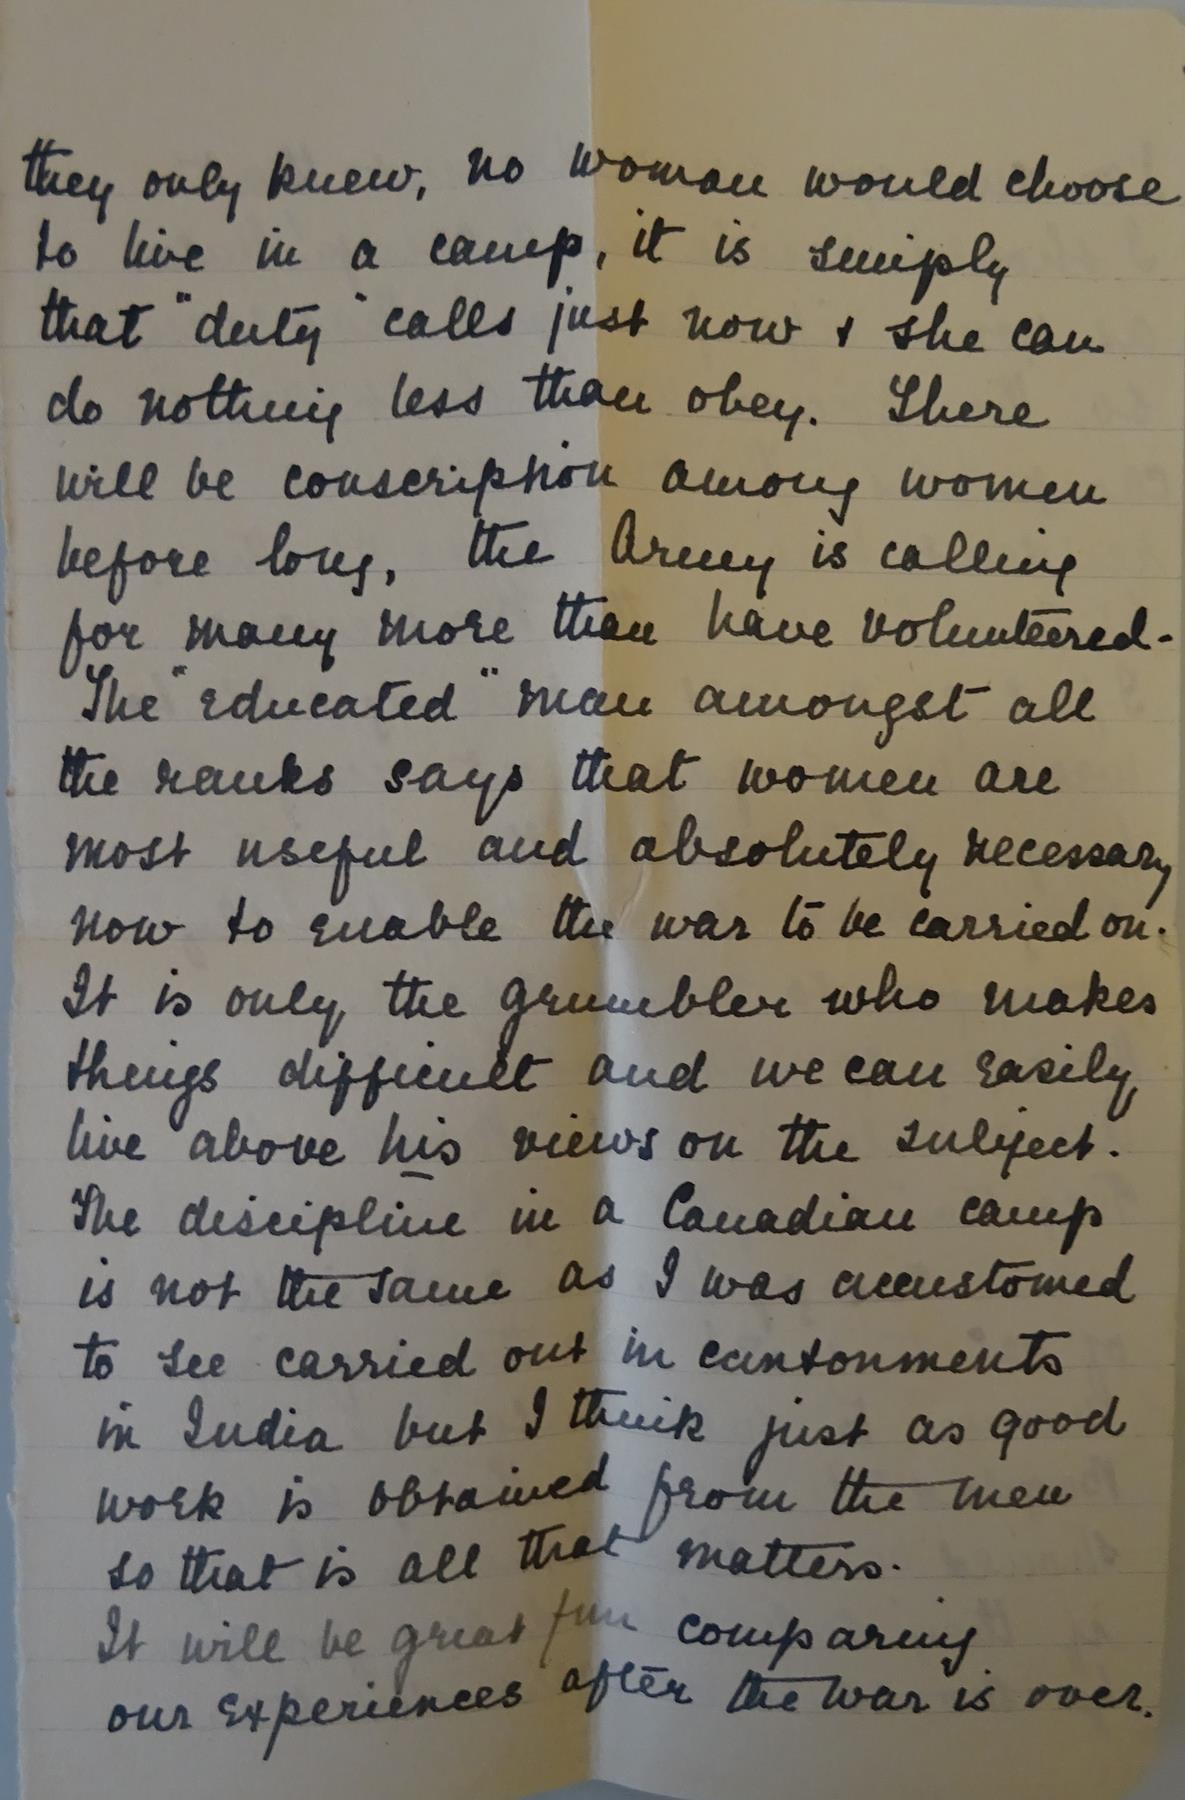 they only knew, no woman would choose
to live in a camp, it is simply
that "duty" calls just now & she can
do nothing less than obey. There
will be conscription among women
before long, the Army is calling
for many more than have volunteered.
The "educated" man amongst all
the ranks says that women are
most useful and absolutely necessary
now to enable the war to be carried on.
It is only the grumbler who makes
things difficult and we can easily
live above his views on the subject.
The discipline in a Canadian camp
is not the same as I was accustomed
to see carried out in cantonments
in India but I think just as good
work is obtained from the men
so that is all that matters.
It will be great fun comparing
our experiences after the war is over.